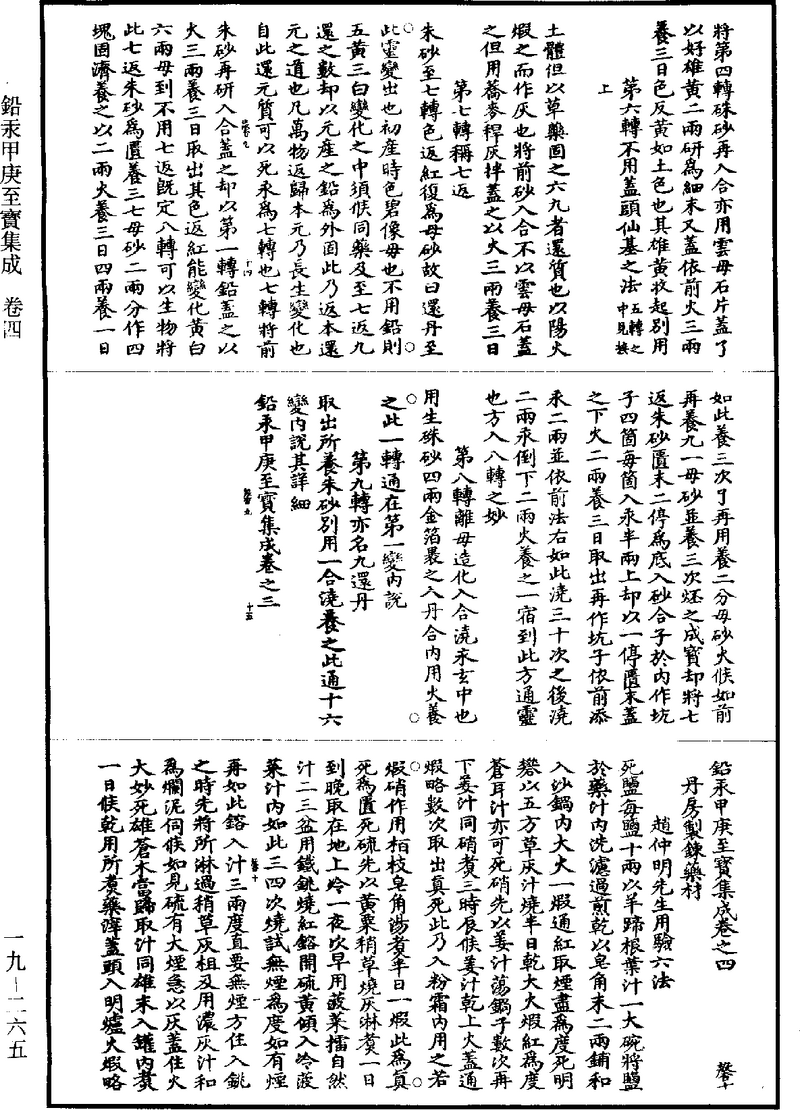 鉛汞甲庚至寶集成 卷四
將第四轉硃砂再入合亦用雲母石片蓋了
以好雄黃二兩研爲細末又蓋依前火三兩
養三日色反黃如土色也其雄黃收起別用
第六轉不用蓋頭仙基之法五轉之中見換
上
土體但以草藥固之六九者還質也以陽火
煅之而作灰也將前砂入合不以雲母石蓋
之但用蕎麥稈灰拌蓋之以火三兩養三日
第七轉稱七返
朱砂至七轉色返紅復爲母砂故曰還丹至
此靈變出也初產時色碧像母也不用鉛則
五黃三白變化之中須候同藥及至七返九
還之數却以元產之鉛爲外固此乃返本還
元之道也凡萬物返歸本元乃長生變化也
自此還元質可以死汞爲七轉也七轉將前
朱砂再研入合蓋之却以第一轉鉛蓋之以
火三兩養三日取出其色返紅能變化黃白
六兩母到不用七返旣定八轉可以生物將
此七返朱砂爲匱養三七母砂二兩分作四
塊固濟養之以二兩火養三日四兩養一日
如此養三次了再用養二分母砂火候如前
再養九一母砂並養三次烓之成寶却將七
返朱砂匱末二停爲底入砂合子於內作坑
子四箇每箇入汞半兩上却以一停匱末蓋
之下火二兩養三日取出再作坑子依前添
汞二兩並依前法右如此澆三十次之後澆
二兩汞倒下二兩火養之一宿到此方通靈
也方入八轉之妙
第八轉離母造化入合澆汞玄中也
用生硃砂四兩金箔裹之入丹合內用火養
之此一轉通在第一變內說
第九轉亦名九還丹
取出所養朱砂別用一合澆養之此通十六
變內說其詳細
鉛汞甲庚至寶集成卷之三
鉛汞甲庚至寶集成卷之四
丹房製鍊藥材
趙仲明先生用驗六法
死鹽每鹽十兩以羊蹄根葉汁一大碗將鹽
於藥汁內洗濾過煎乾以皂角末二兩鋪和
入沙鍋內大火一煅通紅取煙盡爲度死明
礬以五方草灰汁燒半日乾大火煅紅爲度
蒼耳汁亦可死硝先以姜汁蕩鍋子數次再
下姜汁同硝煮三時辰候姜汁乾上火蓋通
煅略數次取出眞死此乃入粉霜內用之若
煅硝作用栢枝皂角湯煮半日一煅此爲眞
死爲匱死硫先以黃粟稍草燒灰淋煮一日
到晚取在地上冷一夜次早用菠菜擂自然
汁二三盆用鐵銚燒紅鎔開硫黃傾入冷菠
菜汁內如此三四次燒試無煙爲度如有煙
再如此鎔入汁三兩度直要無煙方住入銚
之時先將所淋過稍草灰柤及用濃灰汁和
爲爛泥伺候如見硫有大煙急以灰蓋住火
大妙死雄蒼木當歸取汁同雄末入鑵內煮
一日候乾用所煮藥滓蓋頭入明爐火煅略
一九-二六五